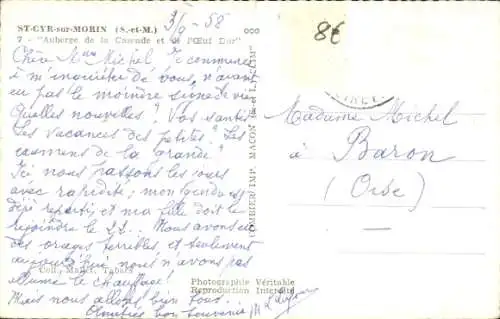 ST-CYR-sur-MORIN (S.-et-M.)
3/9 - 58
7 - "Auberge de la Cascade et de l'Œuf Dur"
8€
Chère Mme Michel, Je commence
à m'inquiéter de vous, n'ayant
eu pas le moindre signe de vie
Quelles nouvelles ? Vos santés
Les vacances des petites ? Les
examens de la grande ?
Ici nous passons les jours
avec rapidité ; mon gendre est
déjà reparti et ma fille doit le
rejoindre le 22. Nous avons eu
des orages terribles et seulement
aujourd'hui nous n'avons pas
Coll. Tabacs
allumé le chauffage !
Mais nous allons bien tous.
Amitiés bon souvenir M.
Photographie Véritable
Reproduction Interdite
COMBIER IMP. MACON (S.-et-L.) "CIM"
Madame Michel
à Baron
(Oise)